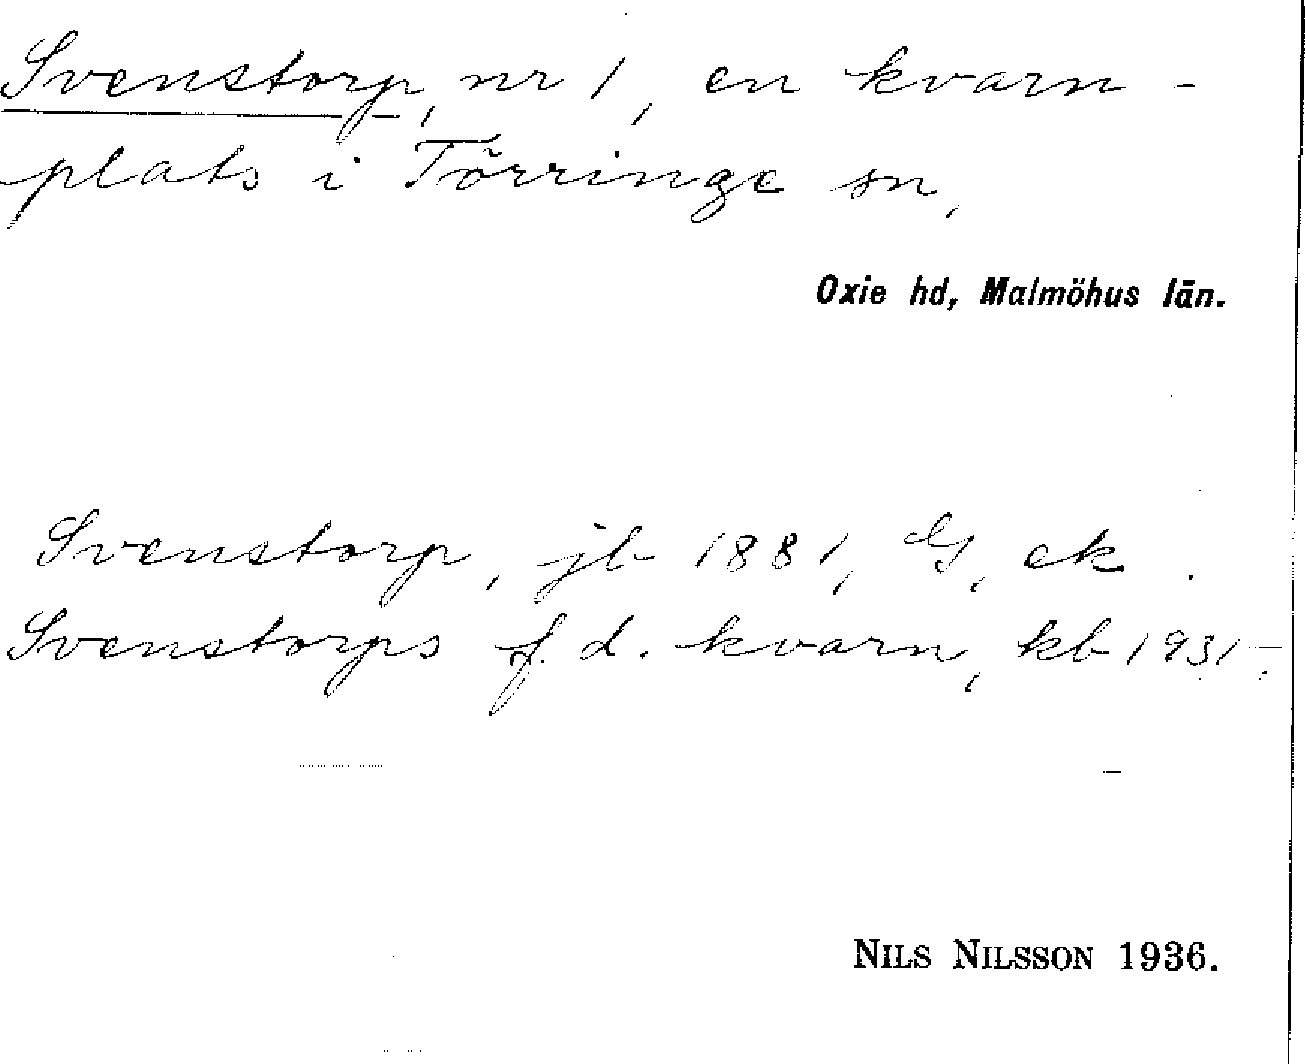 Svenstorp, nr 1, en kvarn-
plats i Törringe sn,
Oxie hd, Malmöhus län.
Svenstorp, jb 1881, G, ek.
Svenstorps f. d. kvarn, kb 1931-.
NILS NILSSON 1936.